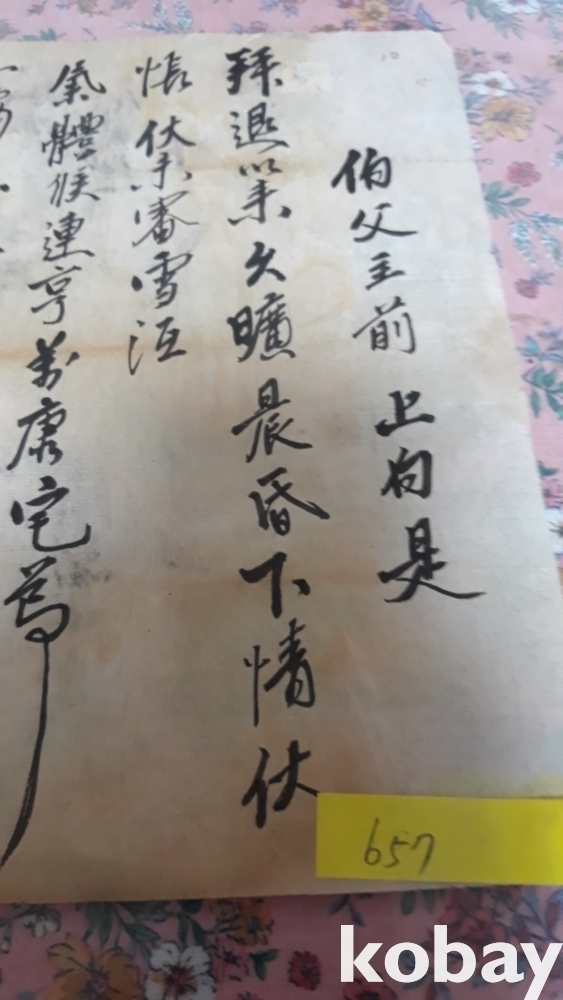 伯父主前 上白是
拜退以來久曠晨昏下情伏
悵伏未審雪沍
氣體候連亨萬康宅
657
kobay